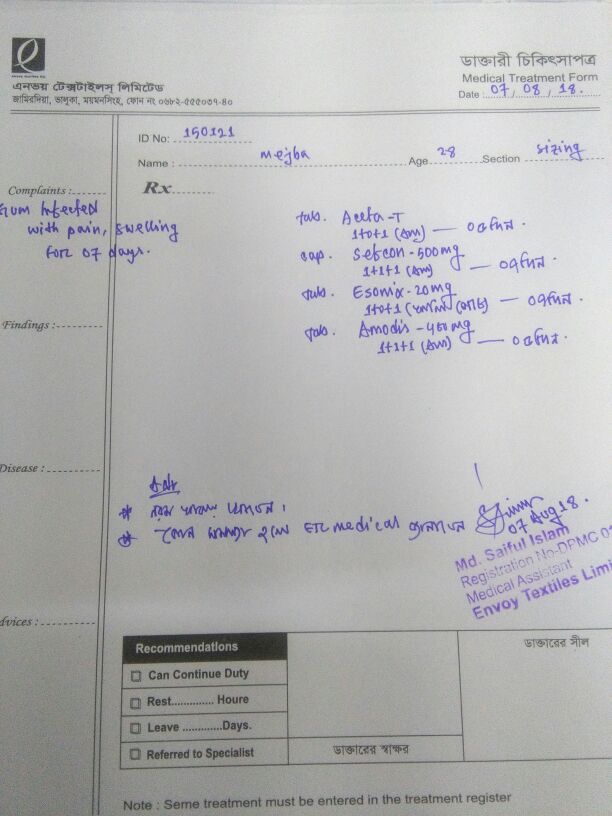 Envoy Textiles Ltd.
এনভয় টেক্সটাইলস্ লিমিটেড
জামিরদিয়া, ভালুকা, ময়মনসিংহ, ফোন নং ০৬৮২-৫৫৫০৩৭-৪০
ডাক্তারী চিকিৎসাপত্র
Medical Treatment Form
Date : 07, 08, 18.
ID No: 150121
Name : mejba Age 28 Section sizing
Complaints :
Gum Infected
with pain, swelling
for 07 days.
Rx
Tab. Aceta-T
1+0+1 — ০৫দিন.
cap. Sefcon-500mg
1+1+1 — ০৭দিন.
Tab. Esomix-20mg
1+0+1 — ০৭দিন.
Tab. Amodis-400mg
1+1+1 — ০৫দিন.
Findings :
Disease :
নরম খাবার খাবেন।
কোন সমস্যা হলে ETL medical
07 Aug 18.
Md. Saiful Islam
Registration No-DPMC 0
Medical Assistant
Envoy Textiles Limi
dvices :
Recommendations
Can Continue Duty
Rest.............. Houre
Leave ............Days.
Referred to Specialist
ডাক্তারের স্বাক্ষর
ডাক্তারের সীল
Note : Seme treatment must be entered in the treatment register